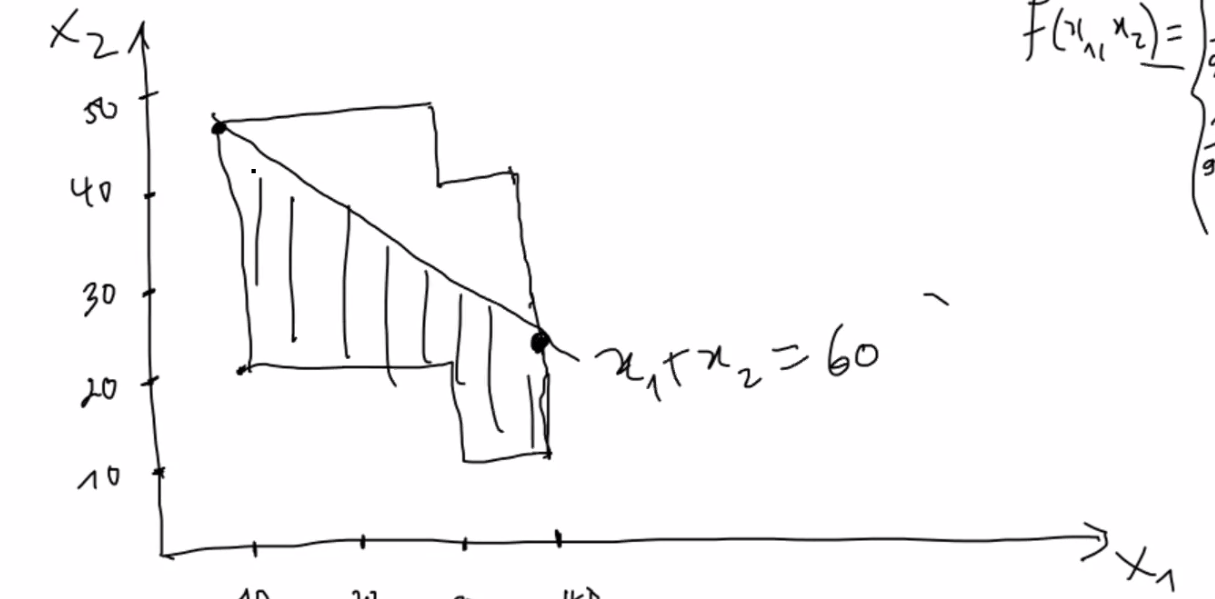 x₂
50
40
30
20
10
x₁ + x₂ = 60
x₁
f(x₁, x₂) =